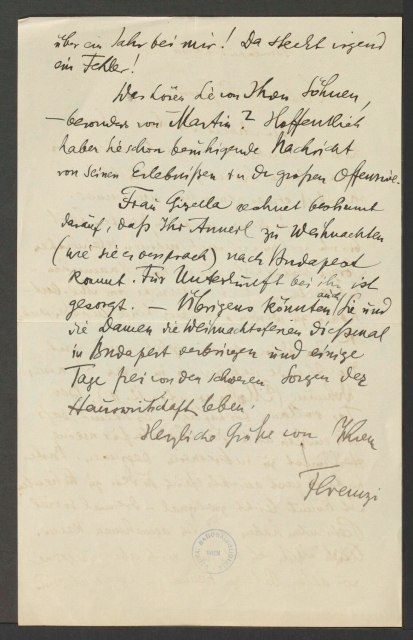 über ein Jahr bei mir! Da steckt irgend
ein Fehler!
Was hören Sie von Ihren Söhnen,
– besonders von Martin? Hoffentlich
haben Sie schon beruhigende Nachricht
von seinen Erlebnißen in der großen Offensive.
Frau Gizella rechnet bestimmt
darauf, daß Ihr Annerl zu Weihnachten
(wie sie es versprach) nach Budapest
kommt. Für Unterkunft bei ihr ist
gesorgt. – Übrigens könnten auch Sie und
die Damen die Weihnachtsferien dießmal
in Budapest verbringen und einige
Tage frei von den schweren Sorgen der
Hauswirtschaft leben.
Herzliche Grüße von Ihrem
Ferenczi